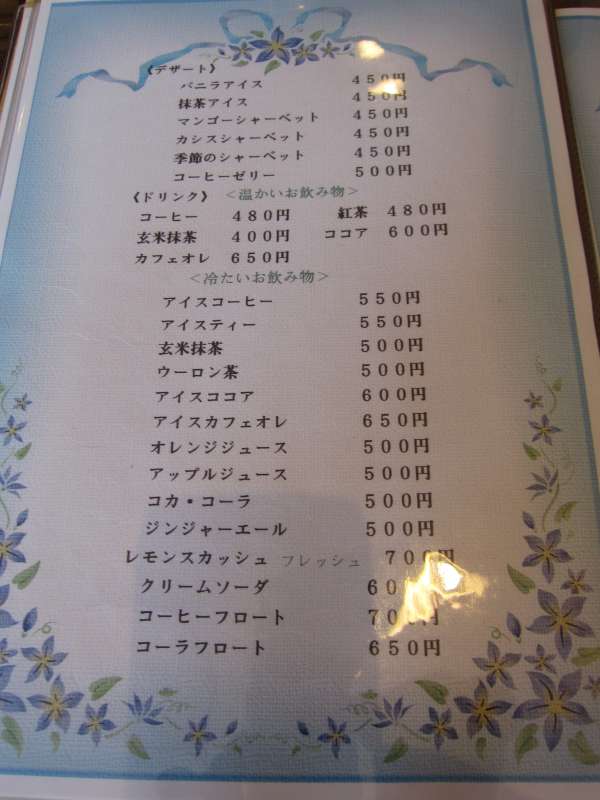 《デザート》
バニラアイス ４５０円
抹茶アイス ４５０円
マンゴーシャーベット ４５０円
カシスシャーベット ４５０円
季節のシャーベット ４５０円
コーヒーゼリー ５００円
《ドリンク》 ＜温かいお飲み物＞
コーヒー ４８０円 紅茶 ４８０円
玄米抹茶 ４００円 ココア ６００円
カフェオレ ６５０円
＜冷たいお飲み物＞
アイスコーヒー ５５０円
アイスティー ５５０円
玄米抹茶 ５００円
ウーロン茶 ５００円
アイスココア ６００円
アイスカフェオレ ６５０円
オレンジジュース ５００円
アップルジュース ５００円
コカ・コーラ ５００円
ジンジャーエール ５００円
レモンスカッシュ フレッシュ ７００円
クリームソーダ
コーヒーフロート ７００円
コーラフロート ６５０円